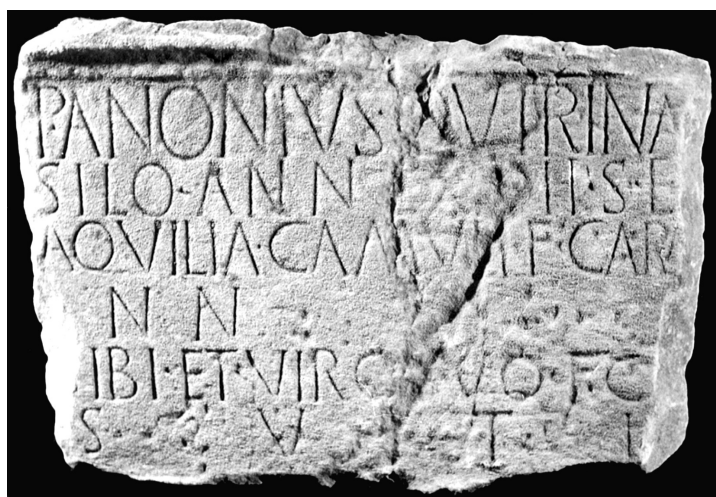 P·ANONIVS· QVIRINA
SILO·ANN II·S·E
AQVILIA·CAM F·CARA
N N
IBI·ET·VIRO VO·F·C
S· V· T· T